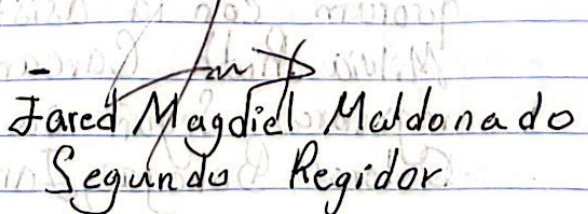 Jared Magdiel Maldonado
Segundo Regidor.